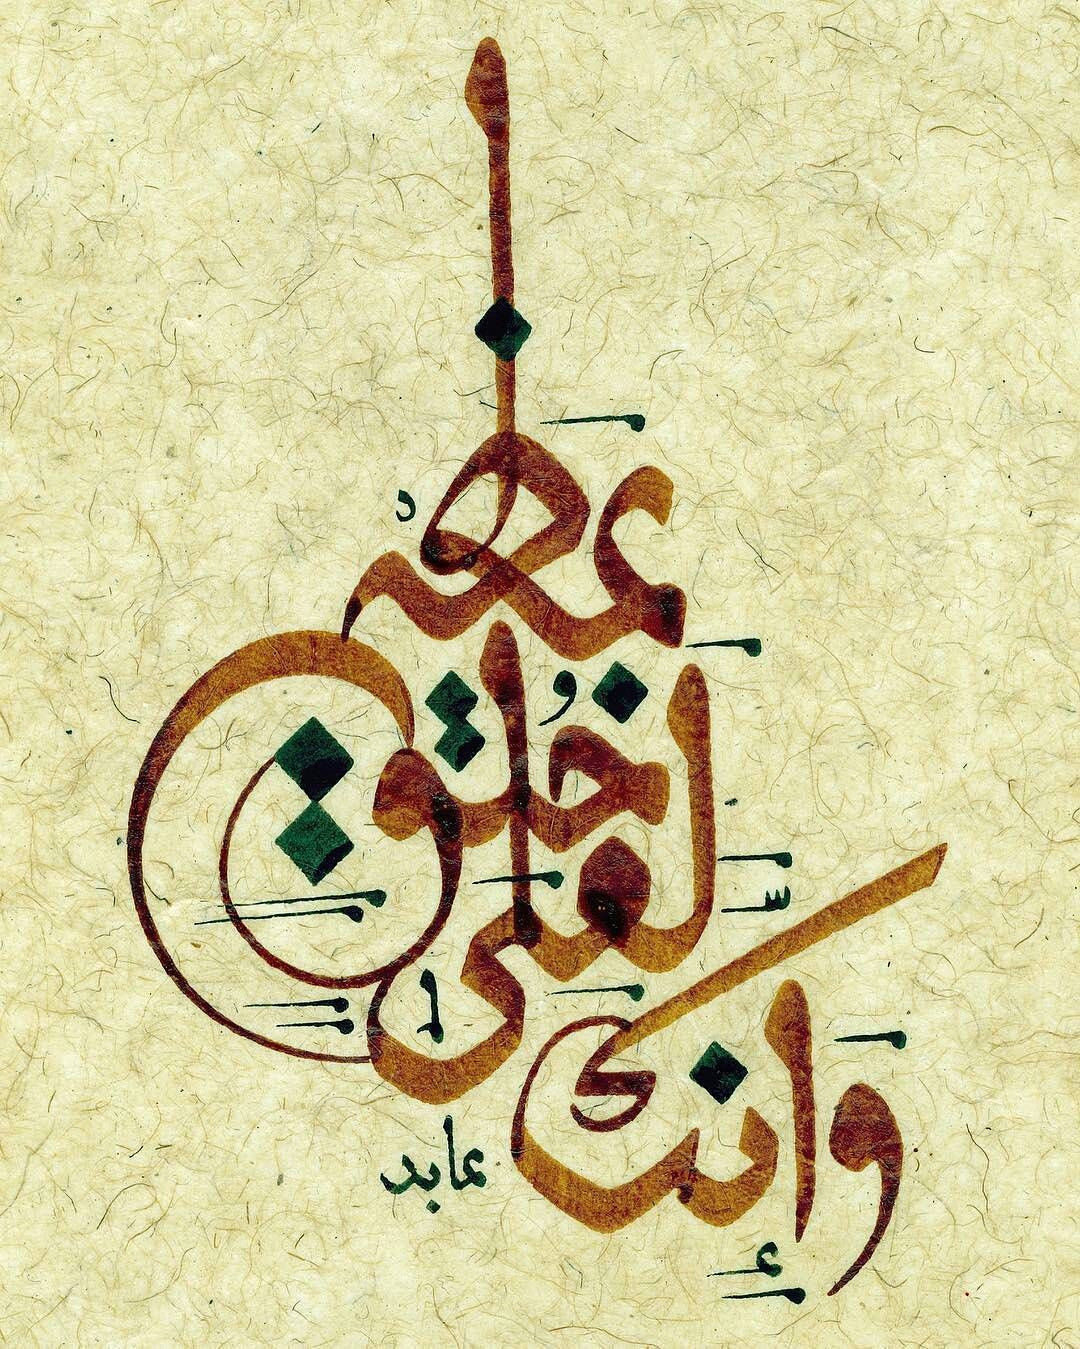 وَإِنَّكَ
لَعَلَىٰ
خُلُقٍ
عَظِيمٍ
عابد